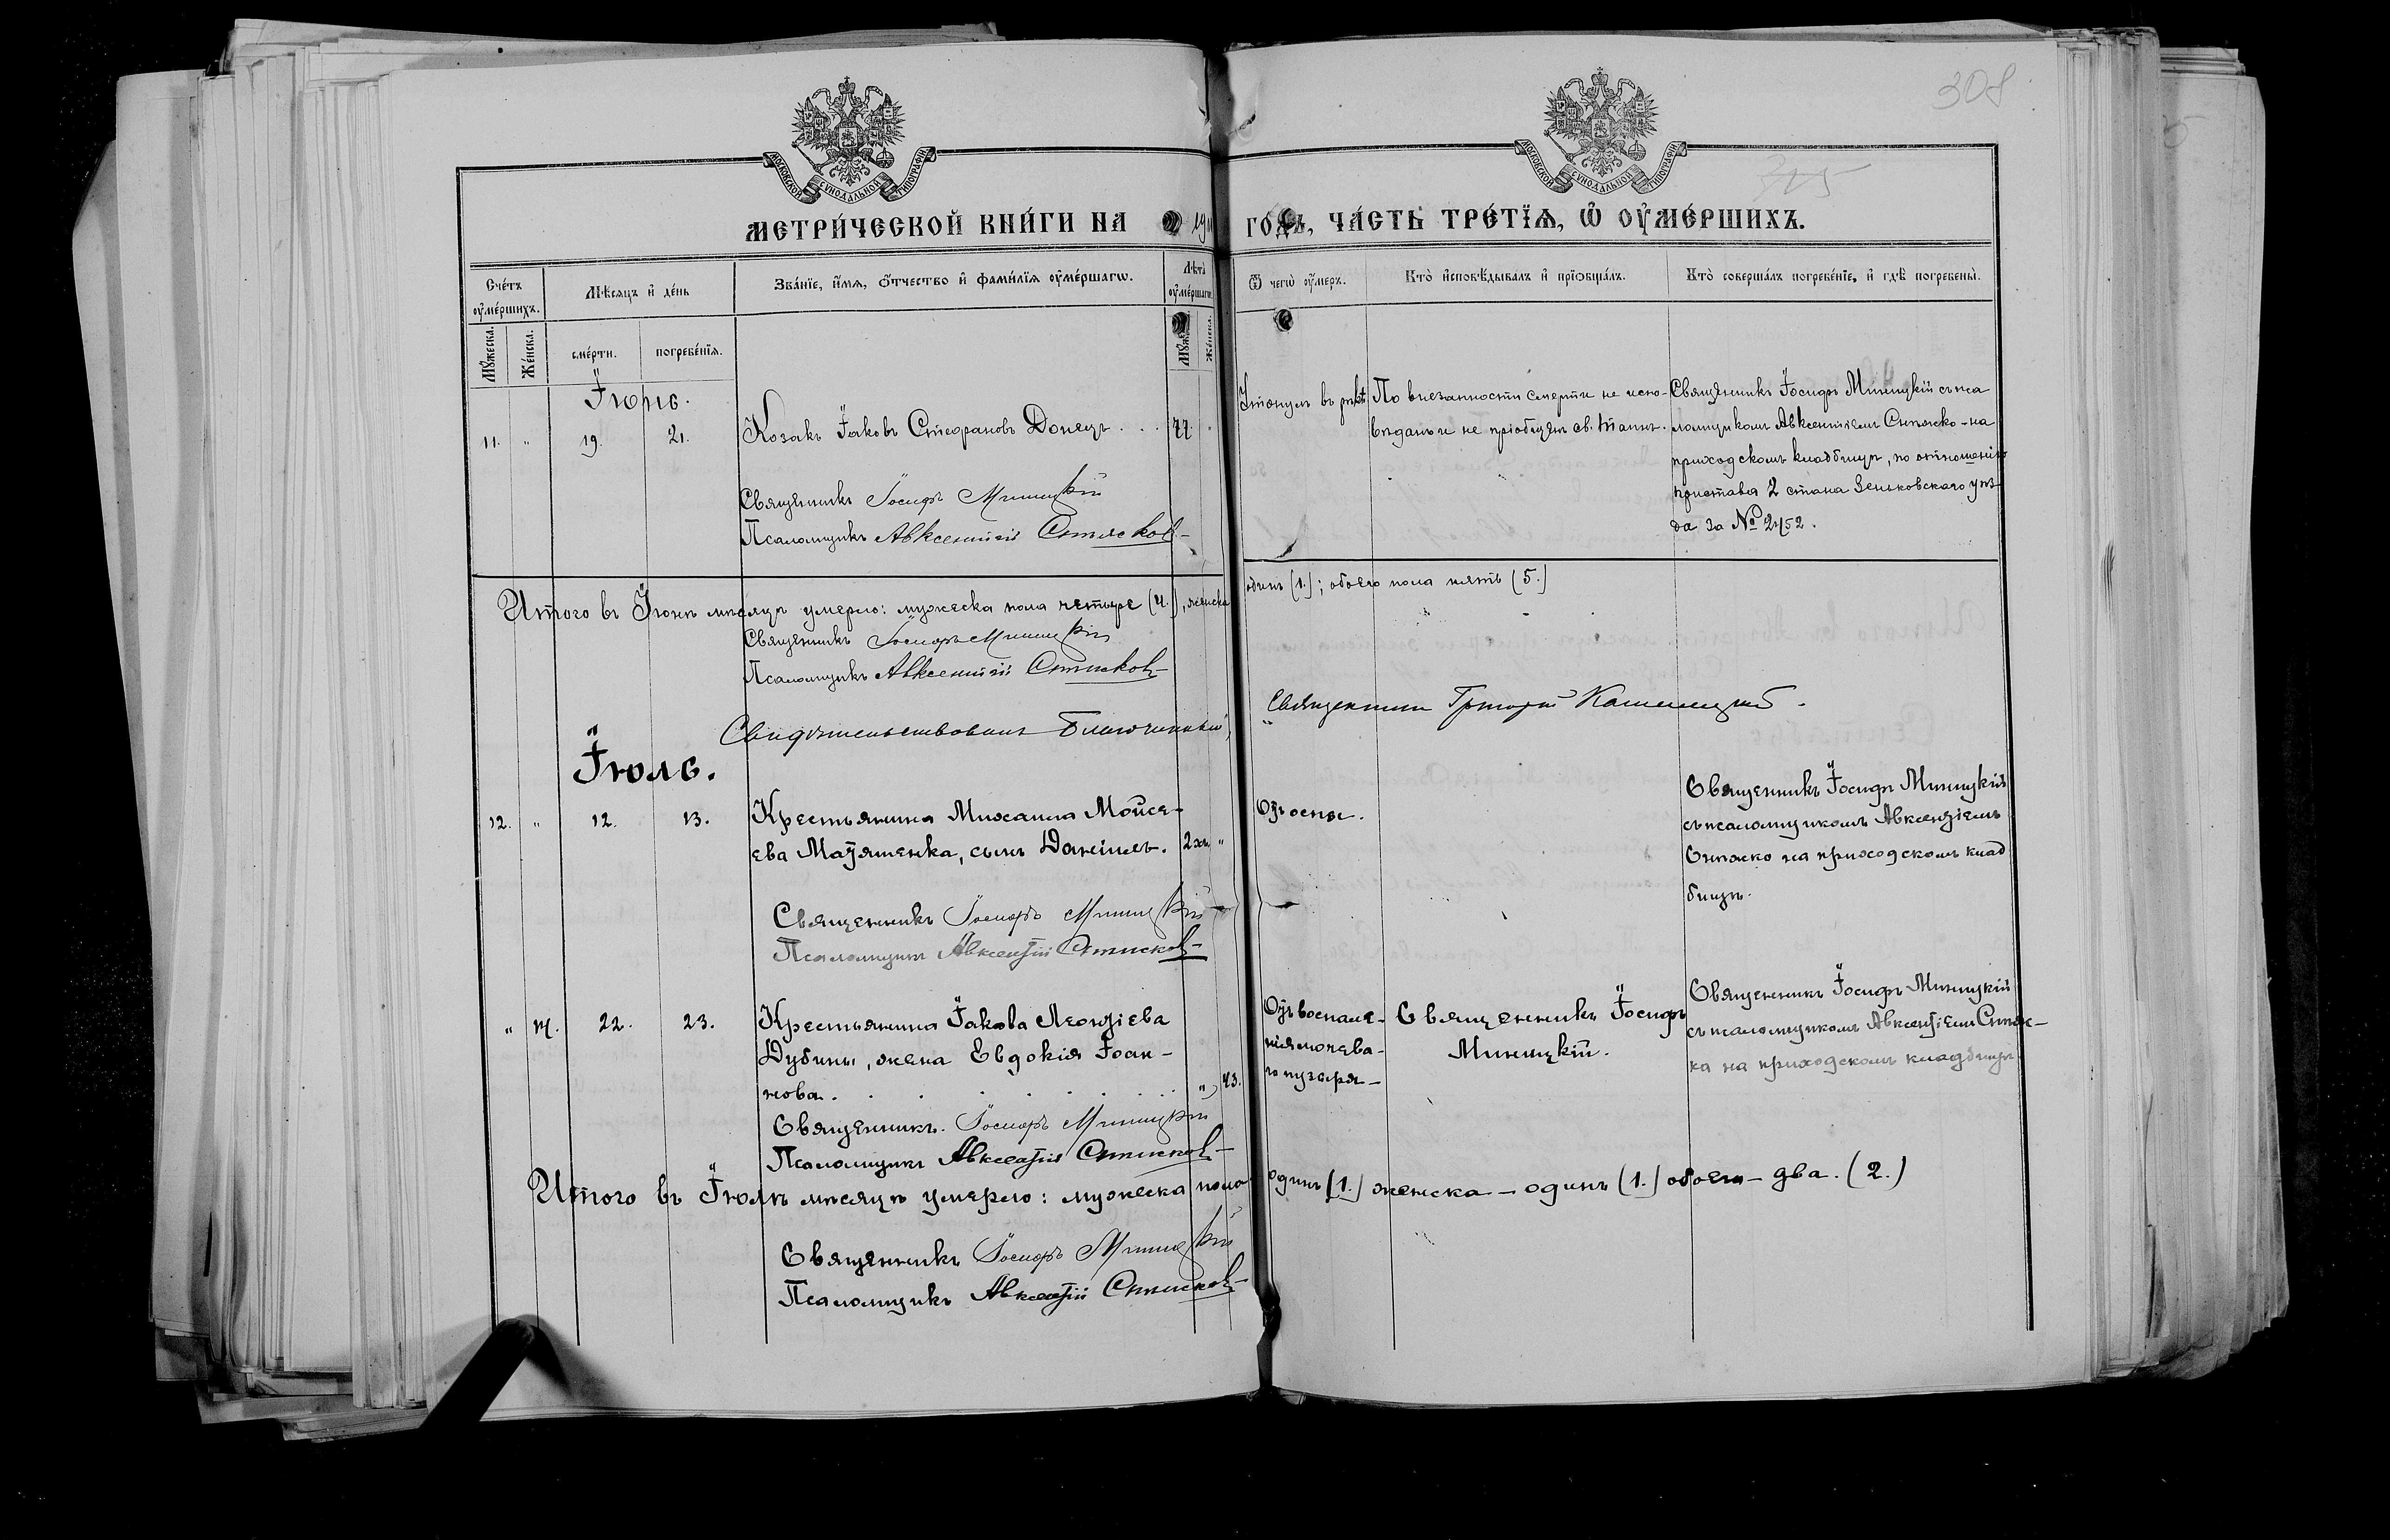 308
315
МОСКОВСКОЙ СѴНОДАЛЬНОЙ ТИПОГРАФІИ
МОСКОВСКОЙ СѴНОДАЛЬНОЙ ТИПОГРАФІИ
МЕТРИ́ЧЕСКОЙ КНИ́ГИ НА 191 ГО́ДЪ, ЧА́СТЬ ТРЕ́ТЇѦ, Ѽ ОУ҆МЕ́РШИХЪ.
Сче́тъ оу҆ме́ршихъ.
Мѣ́сяцъ и҆ де́нь
Зва́нїе, и҆́мя, ѻ҆́тчество и҆ фами́лїя оу҆ме́ршагѡ.
Лѣ́та̀ оу҆ме́ршагѡ
Ѿ чегѡ̀ оу҆́меръ.
Кто̀ и҆сповѣ́дывалъ и҆ прїѡбща́лъ.
Кто̀ соверша́лъ погребе́нїе, и҆ гдѣ̀ погребены̀.
Мꙋ́жеска.
Же́нска.
сме́рти.
погребе́нїя.
Мꙋ́жеска.
Же́нска.
Іюнь.
11. " 19. 21. Козакъ Іаковъ Стефановъ Донецъ . . . 77.
Священникъ Іосифъ Миницкій
Псаломщикъ Авксентій
Утонулъ въ рѣкѣ
По внезапности смерти не испо-
вѣданъ и не пріобщенъ св. таинъ.
Священникъ Іосифъ Миницкій съ пса
ломщикомъ Авксентіемъ на
приходскомъ кладбищѣ, по отношенію
пристава 2 стана Зеньковскаго уѣз-
да за № 2752.
Итого въ Іюнѣ мѣсяцѣ умерло: мужеска пола четыре (4.), женска одинъ (1.); обоего пола пять (5.)
Священникъ Іосифъ Миницкій
Псаломщикъ Авксентій
Свидѣтельствовалъ Благочинный, Священникъ Григорій
Іюль.
12. " 12. 13. Крестьянина Михаила Мойсе-
ева сынъ Даніилъ. 2 хъ "
Священникъ Іосифъ Миницкій
Псаломщикъ Авксентій
Отъ оспы.
Священникъ Іосифъ Миницкій
съ псаломщикомъ Авксентіемъ
на приходскомъ клад
бищѣ.
" 22. 23. Крестьянина Іакова Леонтіева
Дубины, жена Евдокія Іоан-
нова. . . . . . . . " 43.
Священникъ Іосифъ Миницкій
Псаломщикъ Авксентій
Отъ воспале-
нія мочева-
го пузыря
Священникъ Іосифъ
Миницкій.
Священникъ Іосифъ Миницкій
съ псаломщикомъ Авксентіемъ
на приходскомъ кладбищѣ
Итого въ Іюлѣ мѣсяцѣ умерло: мужеска пола одинъ (1.) женска - одинъ (1.) обоего - два. (2.)
Священникъ Іосифъ Миницкій
Псаломщикъ Авксентій